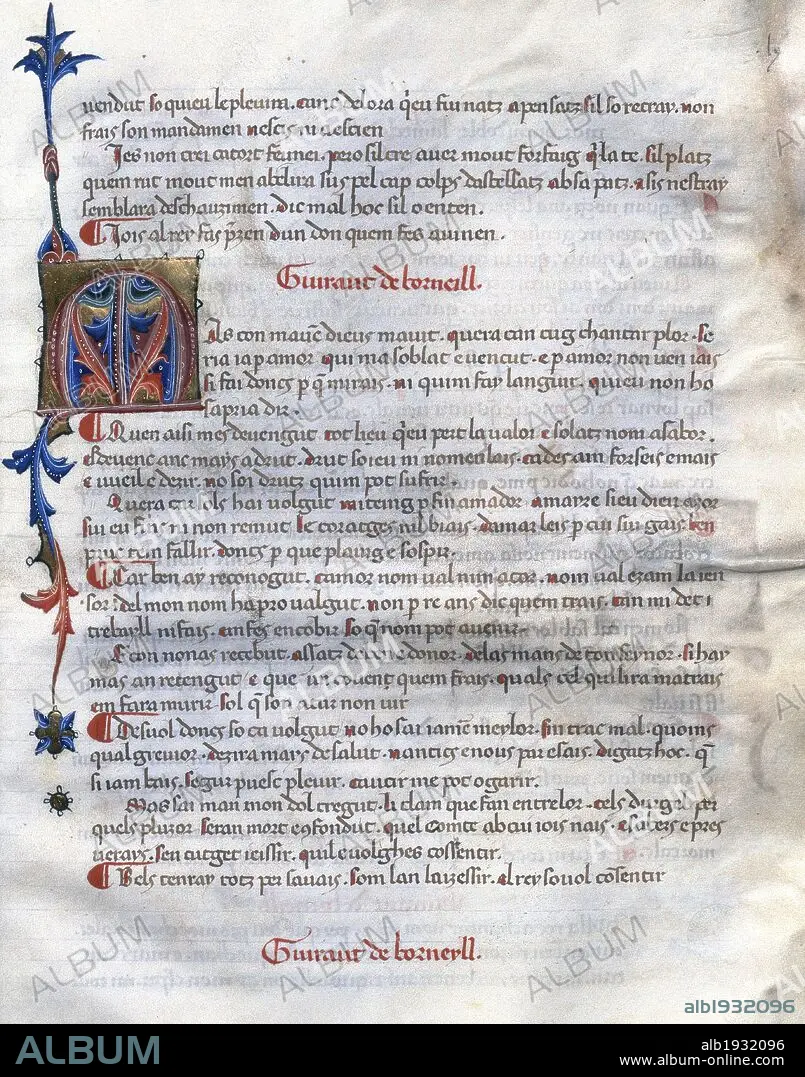 uendut so quieu lepleuim. anc delora q̃eu fui natz apensatz sil so retray. non
frais son mandamen nescis ni descien
Jes non crei catort femei. pero silcre auer mout forfaig q̃la te. sil platz
quem rut mout men abelira sus pel cap colps dastellatz absa patz. asis nestray
semblara deschauzimen. dic mal hoc sil o enten.
Tois al rey fas p̃zen dun don quem fes auinen.
Guiraut de borneill.
As con mauẽ dieus mauit. quera can cug chantar plor. se
ria ia p amor qui ma soblat e uencut. e p amor non uen iais
si fai doncs p q̃ mirais. ni quim fay languir. quieu non ho
sapria dir.
Quen aisi mes deuengut tot lieu q̃eu pert la ualor e solatz nom asabor.
esdeuenc anc mays adrut. drut soi eu ni nomenlais. cades am forseis e mais
e uueil e dezir. no soi drutz quim pot sufrir.
Quera cuiols hai uolgut mi teing p fin amador amayre sieu dieu azor
sui eu fais ni non remut le coratges nil biais. damar leis p cui sui gais ten
prus fallir. doncs p que plaing e sospir.
Car ben ay reconogut. camor nom ual nin acor. nom ual ezam la ien
sor. del mon nom ha pro ualgut. non p re ans dic quem trais. tan mi det i
trebayll nifais. enfes encobir so q̃ nom pot auenir.
E con nonas recebut assatz de donor. delas mans de ton seynor. si hay
mas an retengut e que couenc quem frais. quals cel qui lira matrais
em fara murir sol q̃ son non uir
Desuol doncs fo cu uolgut no ho sai iamẽ meylor. sin trac mal. quoms
qual greuior. dezira mays de salut. nancics enous par esais. digatz hoc. q̃
si iam bais. segur puesc pleuir. caucir me pot o garir.
Mas sai man mon dol tregut. li clam que fan entrelor. cels durgel per
quels pluzor seran mort e cofondut. quel comte ab cui iois nais. e sabers e pres
uerays. sen cutget ieissir. quil e uolghes cossentir.
Bels tenray totz per sauais. som lan layzessir. el rey so uol cõsentir
Guiraut de borneyll.
ALBUM
alb1932096
ALBUM
alb1932096
www.album-online.com